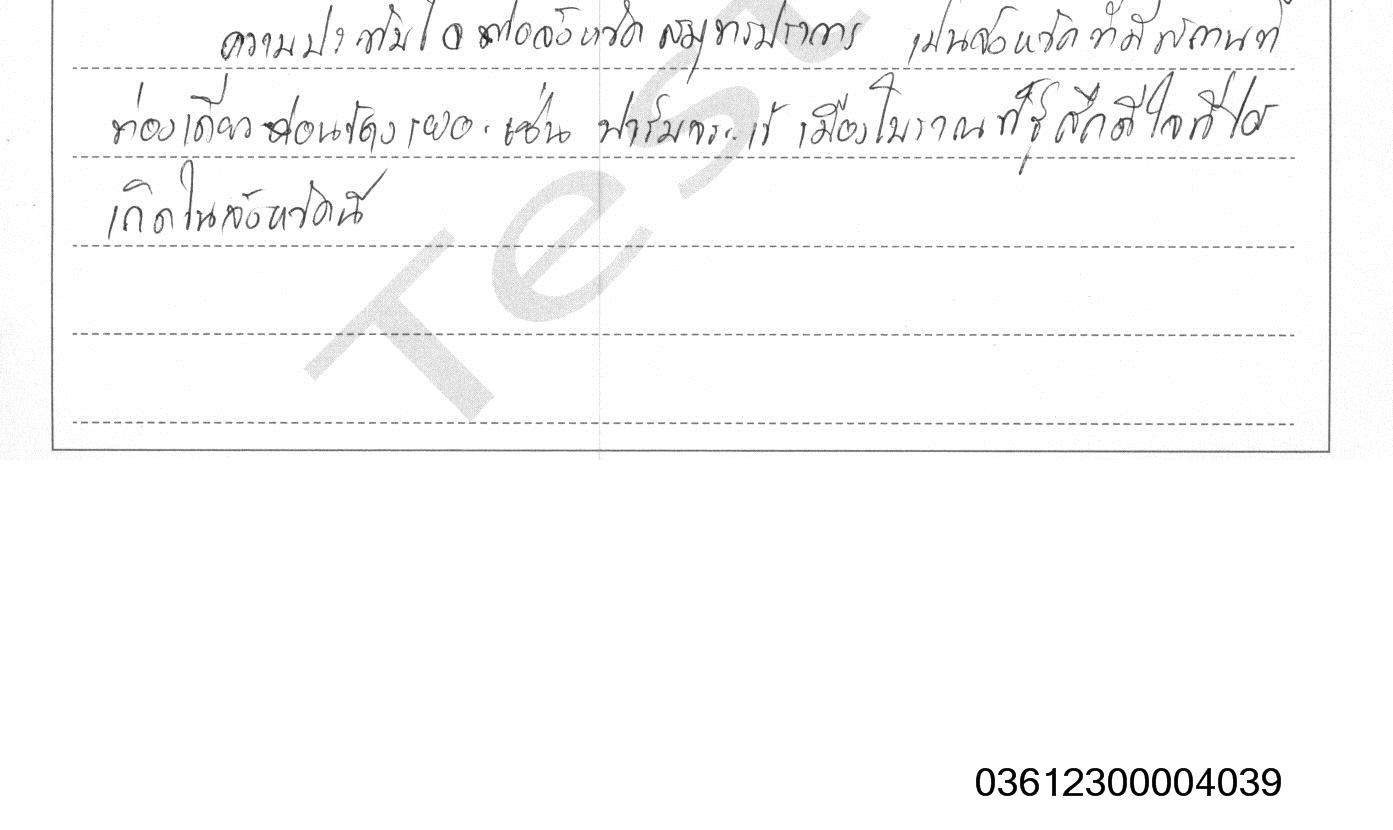 ความประทับใจ ต่อจังหวัด สมุทรปราการ เป็นจังหวัดที่มีสถานที่
ท่องเที่ยวค่อนข้างเยอะ เช่น ฟาร์มจระเข้ เมืองโบราณ ที่รู้สึกดีใจที่ได้
เกิดในจังหวัดนี้
Test
03612300004039